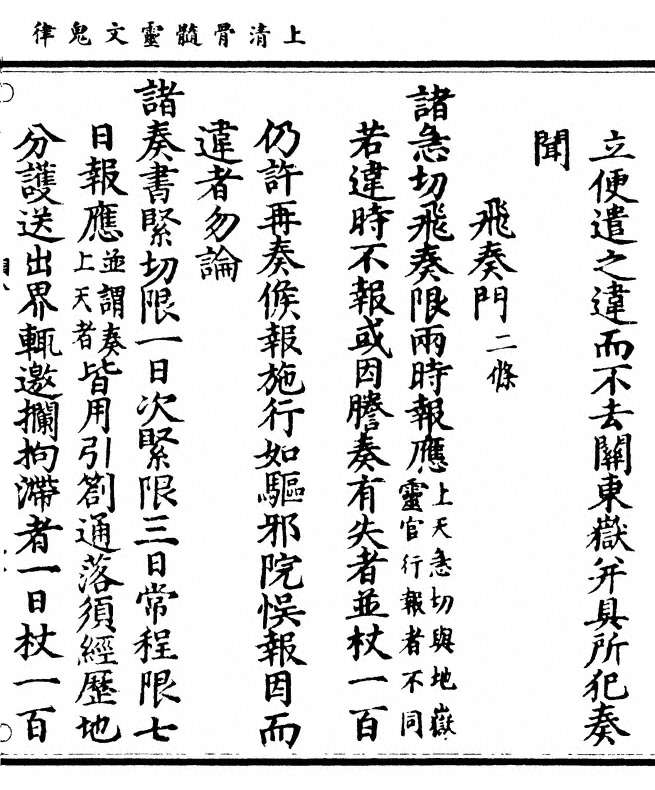 上清骨髓靈文鬼律
立便遣之違而不去關東嶽并具所犯奏
聞
飛奏門二條
諸急切飛奏限兩時報應上天急切與地嶽靈官行報者不同
若違時不報或因謄奏有失者並杖一百
仍許再奏候報施行如驅邪院悞報因而
違者勿論
諸奏書緊切限一日次緊限三日常程限七
日報應並謂奏上天者皆用引劄通落須經歷地
分護送出界輒邀攔拘滯者一日杖一百